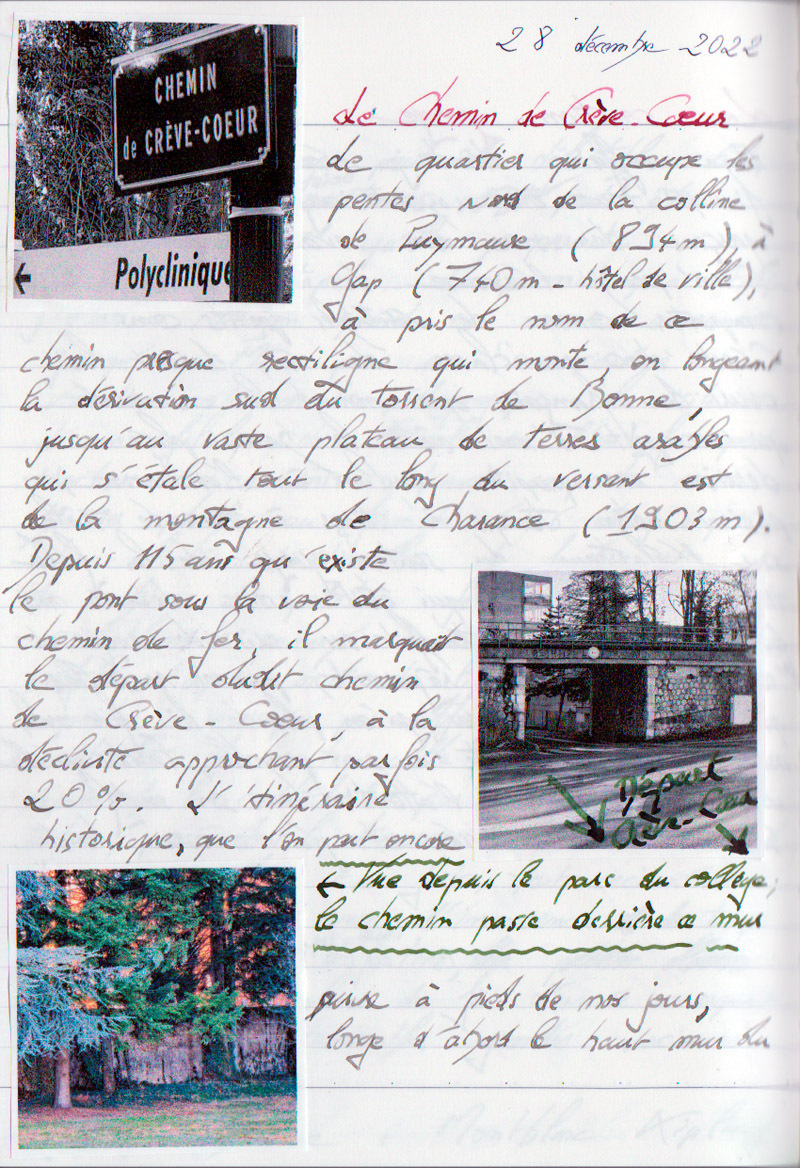 28 décembre 2022
CHEMIN
de CRÈVE-COEUR
Polyclinique
Le Chemin de Crève-Coeur
Le quartier qui occupe les
pentes Nord de la colline
de Puymaure (894m), à
Gap (740m - hôtel de ville),
à pris le nom de ce
chemin presque rectiligne qui monte, en longeant
la dérivation sud du torrent de Bonne,
jusqu'au vaste plateau de terres arables
qui s'étale tout le long du versant est
de la montagne de Charance (1903m).
Depuis 115 ans qu'existe
le pont sous la voie du
chemin de fer, il marquait
le départ dudit chemin
de Crève-Coeur, à la
déclivité approchant parfois
20%. L'itinéraire
historique, que l'on peut encore
Départ
Crève-Coeur
← Vue depuis le parc du collège,
le chemin passe derrière ce mur
suivre à pieds de nos jours,
longe d'abord le haut mur du